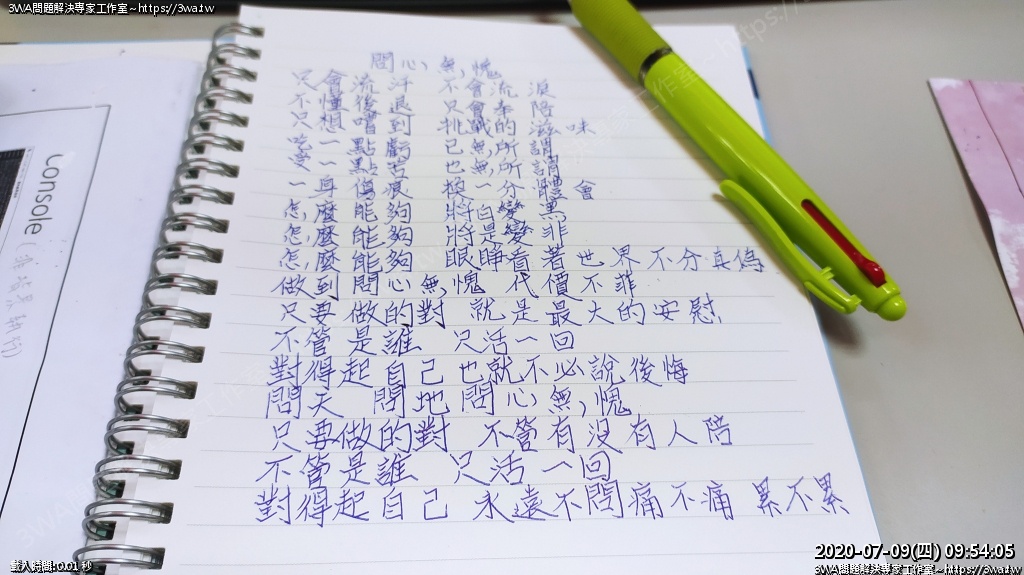 3WA問題解決專家工作室~https://3wa.tw
問心無愧
只會流汗 不會流淚
不懂後退 只會奉陪
只想嚐到 挑戰的滋味
吃一點虧 已無所謂
受一點苦 也無所謂
一身傷痕 換一分體會
怎麼能夠 將白變黑
怎麼能夠 將是變非
怎麼能夠 眼睜看著世界不分真偽
做到問心無愧 代價不菲
只要做的對 就是最大的安慰
不管是誰 只活一回
對得起自己也就不必說後悔
問天 問地 問心無愧
只要做的對 不管有沒有人陪
不管是誰 只活一回
對得起自己 永遠不問痛不痛 累不累
console
載入時間:0.01 秒
2020-07-09(四) 09:54:05
3WA問題解決專家工作室~https://3wa.tw